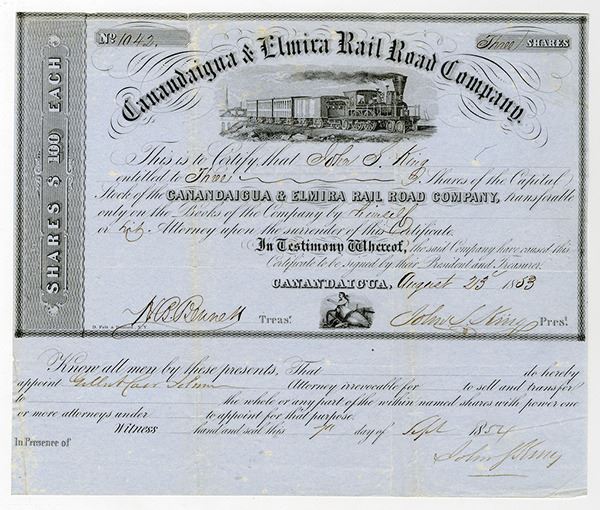 No 1042.
Three SHARES
SHARES $ 100 EACH
Canandaigua & Elmira Rail Road Company.
This is to Certify, that John S. King
entitled to Three 3 Shares of the Capital
Stock of the CANANDAIGUA & ELMIRA RAIL ROAD COMPANY, transferable
only on the Books of the Company by himself
or his Attorney upon the surrender of this Certificate.
In Testimony Whereof, the said Company have caused this
Certificate to be signed by their President and Treasurer.
CANANDAIGUA, August 23d 1853
Treast.
John S King Prest.
Know all men by these presents, That do hereby
appoint Attorney irrevocable for to sell and transfer
to the whole or any part of the within named shares with power one
or more attorneys under to appoint for that purpose.
Witness hand and seal this day of Sept 1854
In Presence of
John S King